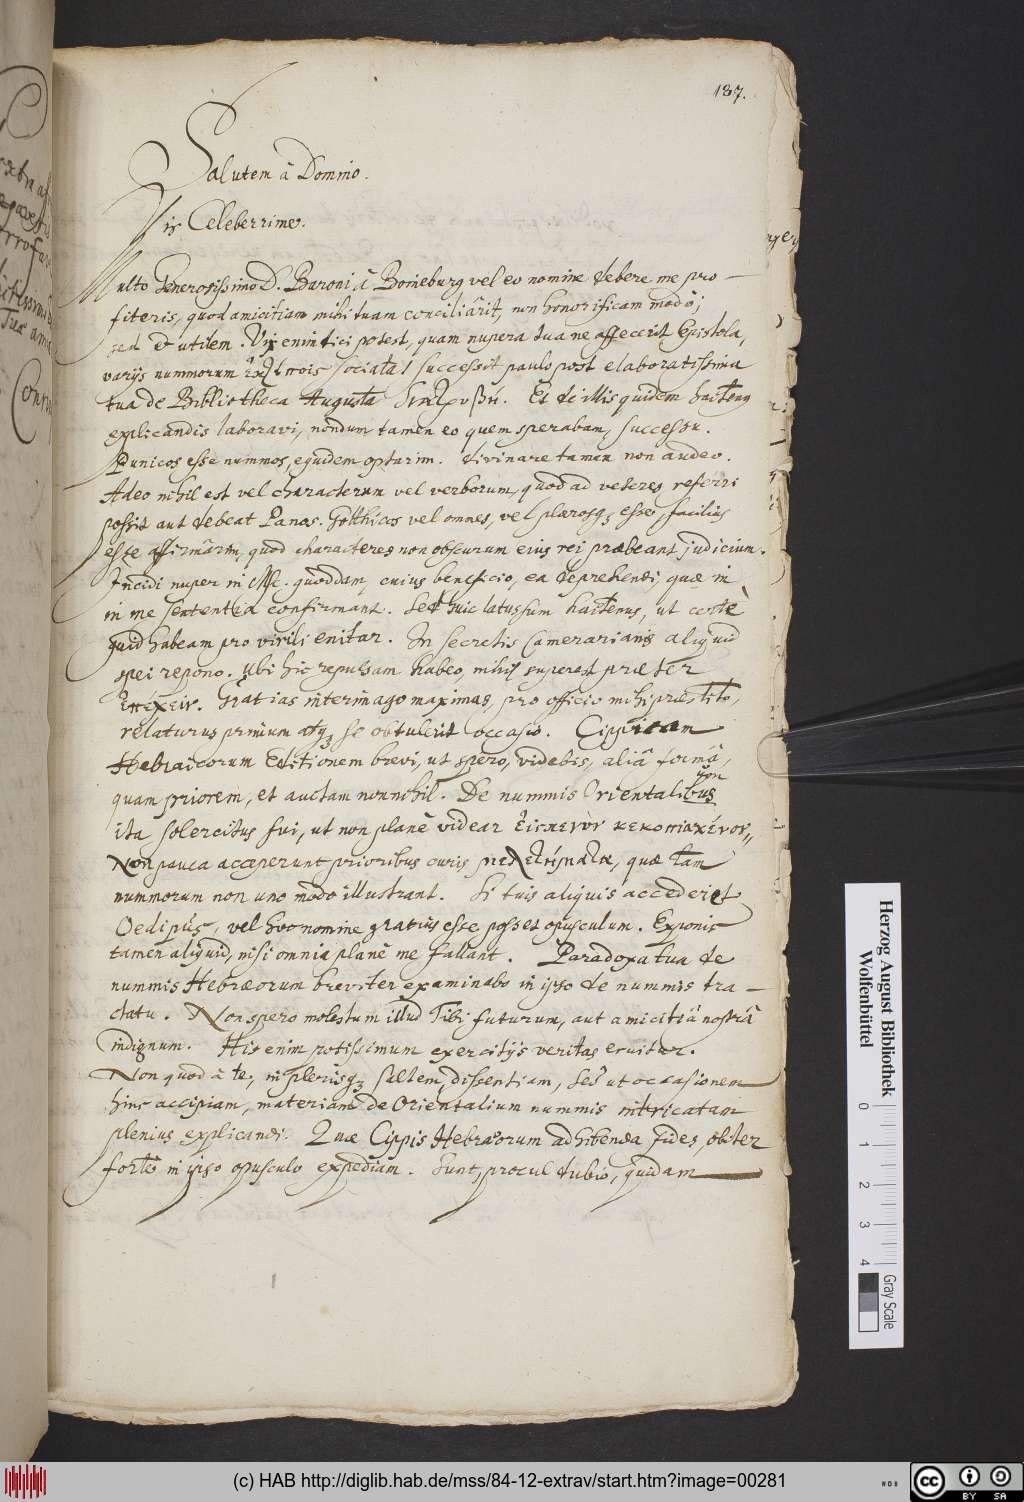 187.
Salutem à Domino.
Vir Celeberrime.
Multo Generosissimo D. Baroni à Boineburg vel eo nomine debere me pro-
fiteris, quod amicitiam mihi tuam conciliârit, non honorificam modò;
sed et utilem. Vix enim dici potest, quam nupera tua me affecerit Epistola,
varijs nummorum sociata! successit paulo post elaboratissima
tua de Bibliotheca Augusta. Et de illis quidem hactenus
explicandis laboravi, nondum tamen eo quem sperabam, successu.
Punicos esse nummos, equidem optarim. divinare tamen non audeo.
Adeo nihil est vel characterum vel verborum, quod ad veteres referri
possit aut debeat Pœnos. Gotthicos vel omnes, vel plerosq; esse, facilius
esse affirmârim, quod characteres non obscurum eius rei præbeant judicium.
Incidi nuper in Msc. quoddam, cuius beneficio, ea deprehendi, quæ in
in me sententia confirmant. Sed huic latus sum hactenus, ut certè
quid habeam pro virili enitar. In secretis Camerarianis aliquid
spei repono. Ubi hic repulsam habeo, nihil superest præter
ἐπέχειν. Gratias interim ago maximas, pro officio mihi præstito,
relaturus primum atq; se obtulerit occasio. Cipporum
Hebraicorum Editionem brevi, ut spero, videbis, aliâ formâ,
quam priorem, et auctam nonnihil. De nummis Orientalibus non
ita solercitus fui, ut non planè videar
Non pauca acceperunt prioribus curis, quæ tam
nummorum non uno modo illustrant. Si tuis aliquis accederet
Oedipus, vel hoc nomine gratius esse posset opusculum. Exponis
tamen aliquid, nisi omnia planè me fallant. Paradoxa tua de
nummis Hebræorum breviter examinabo in ipso de nummis tra-
ctatu. Non spero molestum illud Tibi futurum, aut amicitiâ nostrâ
indignum. His enim potissimum exercitijs veritas eruitur.
Non quod à te, in plerisq; saltem, dissentiam, sed ut occasionem
hinc accipiam, materiam de Orientalium nummis intricatam
plenius explicandi. Quæ Cippis Hebræorum adhibenda fides, obiter
fortè in ipso opusculo expediam. Sunt, procul dubio, quidam
Herzog August Bibliothek
Wolfenbüttel
0 1 2 3 4
Gray Scale
(c) HAB http://diglib.hab.de/mss/84-12-extrav/start.htm?image=00281
cc BY SA